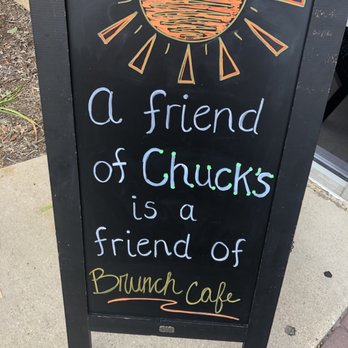 A friend
of Chuck's
is a
friend of
Brunch Cafe